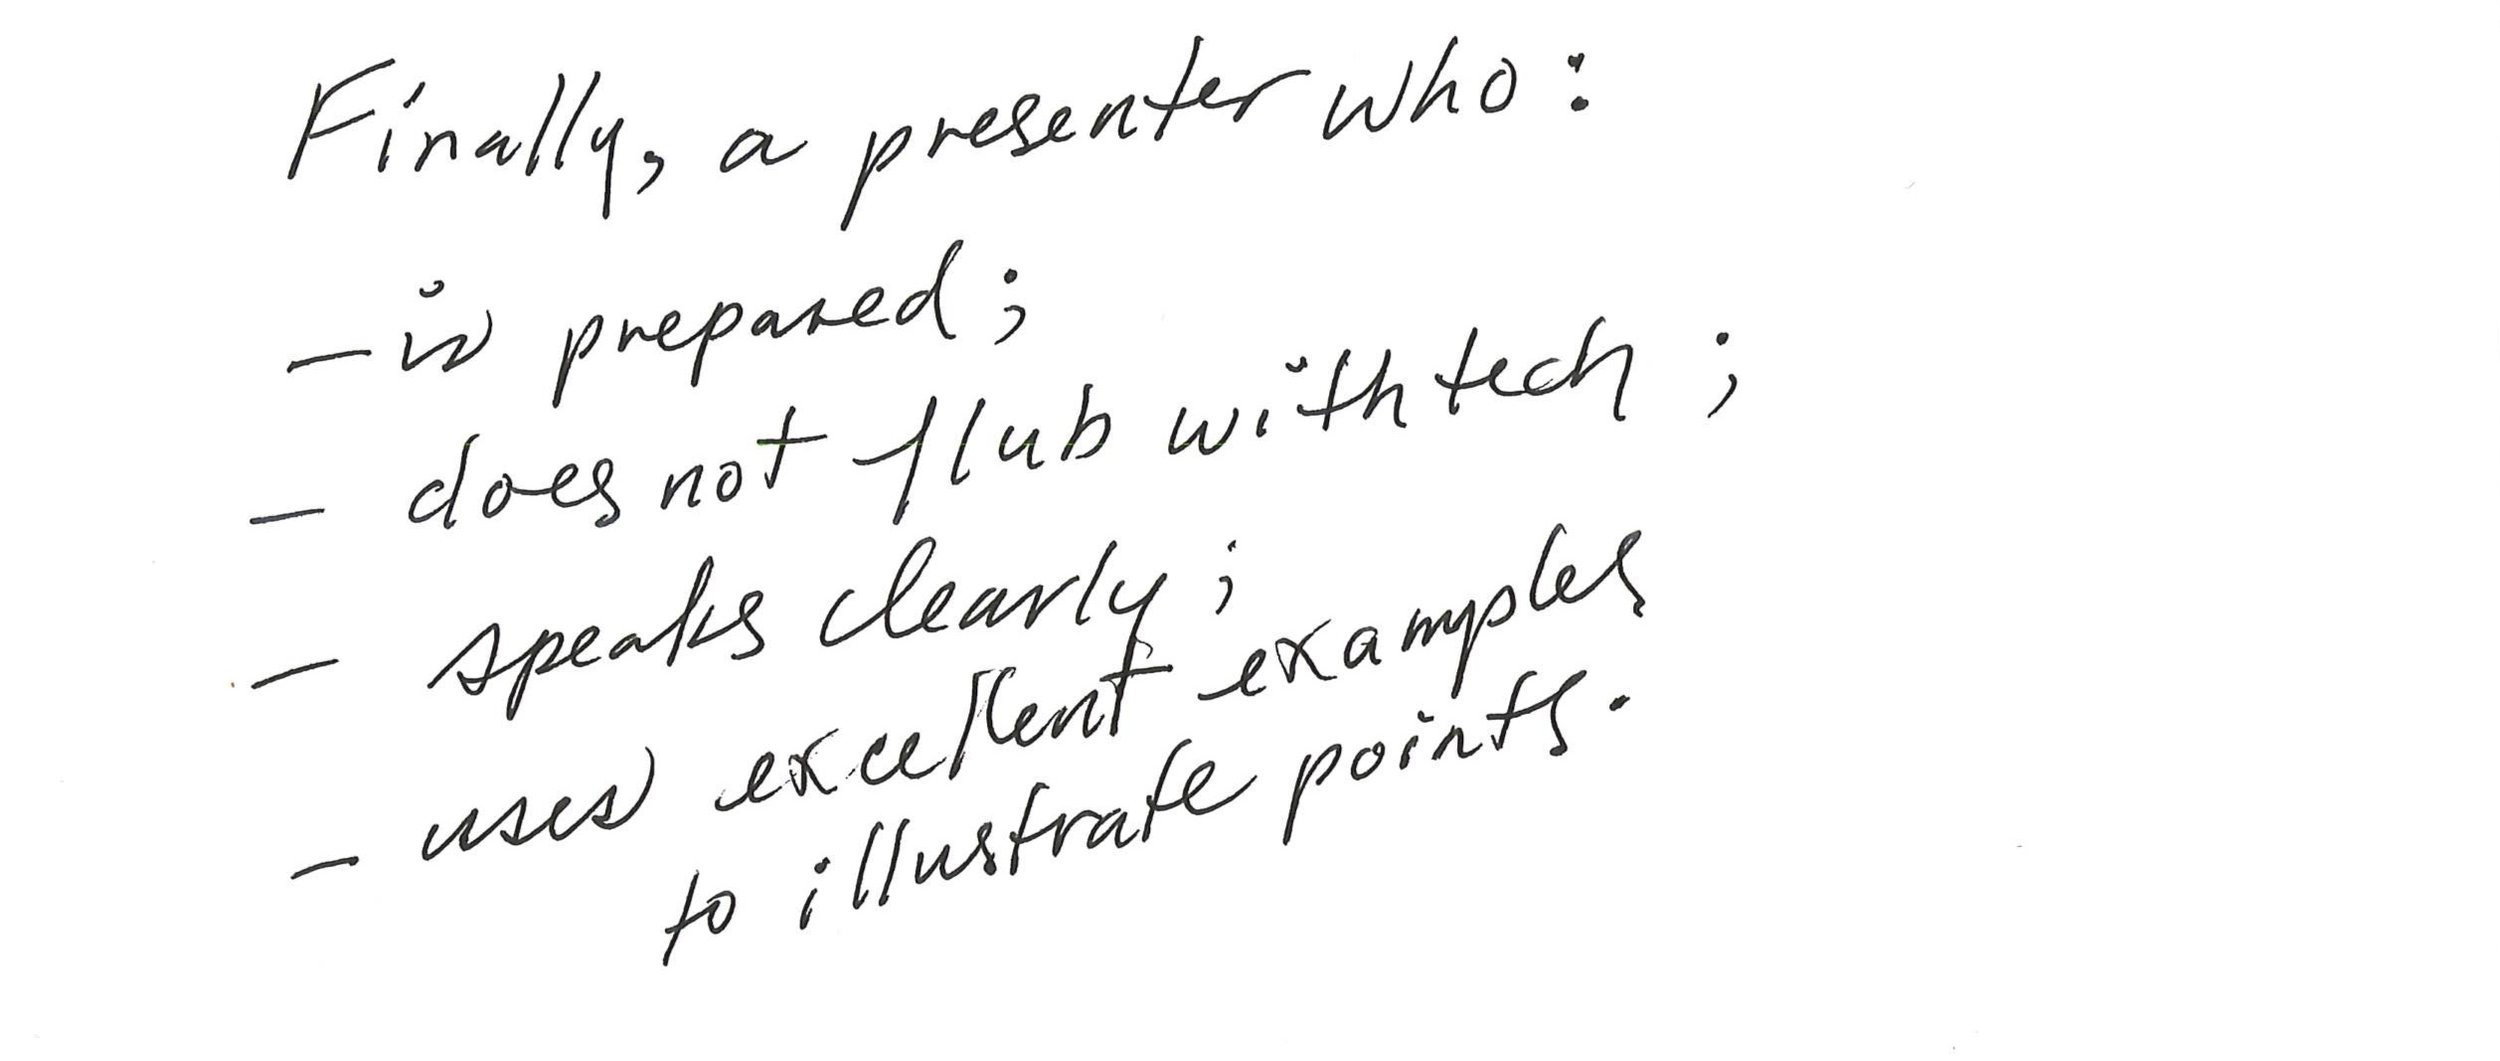 Finally, a presenter who:
– is prepared;
– does not flub with tech;
– speaks clearly;
– uses excellent examples
to illustrate points.